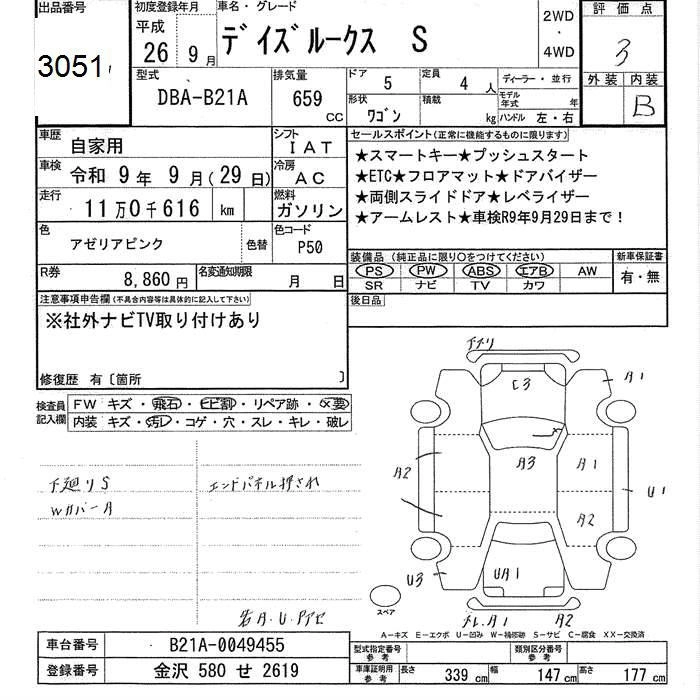 出品番号 初度登録年月 車名・グレード 2WD・4WD 評価点
3051
平成 26年 9月 デイズルークス S 3
外装 内装 B
型式 DBA-B21A 排気量 659 CC
ドア 5 定員 4 人 ディーラー・並行
形状 ワゴン 積載 kg モデル年式 年 ハンドル 左・右
車歴 自家用 シフト IAT
セールスポイント(正常に機能するものに限ります)
車検 令和 9年 9月(29日) 冷房 AC
走行 11万0千616 km 燃料 ガソリン
★スマートキー★プッシュスタート
★ETC★フロアマット★ドアバイザー
★両側スライドドア★レベライザー
★アームレスト★車検R9年9月29日まで！
色 アゼリアピンク 色替 色コード P50
装備品(純正品に限り○をつけてください) 新車保証書
PS PW ABS エアB AW 有・無
SR ナビ TV カワ
R券 8,860円 名変通知期限 月 日
後日品
注意事項申告欄(不具合内容等は具体的に記入して下さい)
※社外ナビTV取り付けあり
修復歴 有〔箇所 〕
検査員記入欄 FW キズ・飛石・ヒビ割・リペア跡・×要
内装 キズ・汚レ・コゲ・穴・スレ・キレ・破レ
下廻りS エンドパネル押され
WカバーA
アタリ
C3 A1
A2 A3 A1 U1
A2
U3 UA1
A1 A2
スペア
A－キズ E－エクボ U－凹み W－補修跡 S－サビ C－腐食 XX－交換済
車台番号 B21A-0049455 型式指定番号 参考 類別区分番号 参考
登録番号 金沢 580 せ 2619 車庫証明用 参考 長さ 339 cm 幅 147 cm 高さ 177 cm